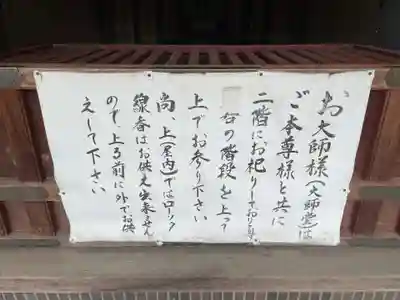 お大師様(大師堂)は
ご本尊様と共に
二階にお祀りしており
右の階段を上って
上でお参り下さい
尚、上(屋内)ではローソク
線香はお供え出来ません
ので、上る前に外でお供
えして下さい